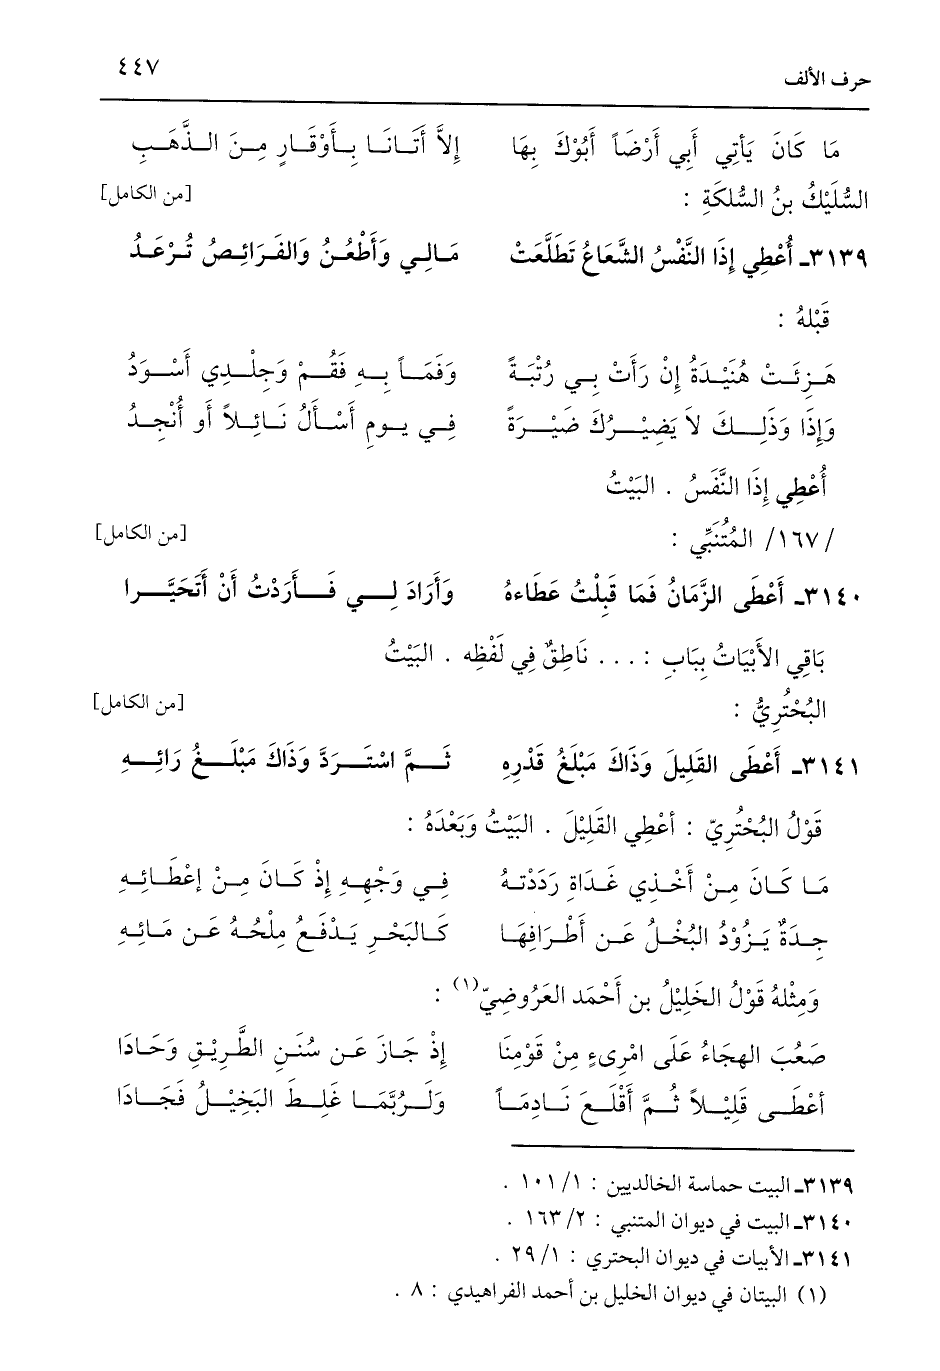 حرف الألف ٤٤٧
مَا كَانَ يَأتِي أَبِي أَرْضَاً أَبُوْكَ بِهَا إِلاَّ أَتَـانَـا بِـأَوْقَـارٍ مِـنَ الـذَّهَـبِ
السُّلَيْكُ بنُ السُّلكَةِ : [من الكامل]
٣١٣٩ـ أُعْطِي إِذَا النَّفْسُ الشَّعَاعُ تَطَلَّعَتْ مَـالِـي وَأَطْعُـنُ وَالفَـرَائِـصُ تُـرْعَـدُ
قَبْلهُ :
هَـزِئَـتْ هُنَيْدَةُ إِنْ رَأَتْ بِـي رُتْبَـةً وَفَمَـاً بِـهِ فَقُـمْ وَجِلْـدِي أَسْـوَدُ
وَإِذَا وَذَلِـكَ لاَ يَضِيْـرُكَ ضَيْـرَةً فِـي يـومِ أَسْأَلُ نَـائِـلاً أو أُنْجِـدُ
أُعْطِي إِذَا النَّفَسُ . البَيْتُ
/١٦٧/ المُتُنَبِّي : [من الكامل]
٣١٤٠ـ أَعْطَى الزَّمَانُ فَمَا قَبِلْتُ عَطَاءهُ وَأَرَادَ لِـي فَـأَرَدْتُ أَنْ أَتَخَيَّـرا
بَاقِي الأَبْيَاتُ بِبَابِ : . . . نَاطِقٌ فِي لَفْظِه . البَيْتُ
البُحْتُرِيُّ : [من الكامل]
٣١٤١ـ أَعْطَى القَلِيلَ وَذَاكَ مَبْلَغُ قَدْرِهِ ثُـمَّ اسْتَـرَدَّ وَذَاكَ مَبْلَـغُ رَائِـهِ
قَوْلُ البُحْتُرِيّ : أعْطِي القَلِيْلَ . البَيْتُ وَبَعْدَهُ :
مَـا كَـانَ مِـنْ أَخْـذِي غَـدَاةَ رَدَدْتـهُ فِـي وَجْهِـهِ إِذْ كَـانَ مِـنْ إعْطَـائِـهِ
جِـدَةٌ يَـزُوْدُ البُخْـلُ عَـن أَطْـرَافِهَـا كَـالبَحْـرِ يَـدْفَـعُ مِلْحُـهُ عَـن مَـائِـهِ
وَمِثْلهُ قَوْلُ الخَلِيْلُ بن أَحْمَد العَرُوضِيّ(١) :
صَعُبَ الهِجَاءُ عَلَى امْرِىءٍ مِنْ قَوْمِنَا إِذْ جَـازَ عَـن سُنَـنِ الطَّـرِيْـقِ وَحَـادَا
أعْطَـى قَلِيْـلاً ثُـمَّ أَقْلَـعَ نَـادِمَـاً وَلَـرُبَّمَـا غَلِـطَ البَخِيْـلُ فَجَـادَا
٣١٣٩ـ البيت حماسة الخالديين : ١٠١/١ .
٣١٤٠ـ البيت في ديوان المتنبي : ١٦٣/٢ .
٣١٤١ـ الأبيات في ديوان البحتري : ٢٩/١ .
(١) البيتان في ديوان الخليل بن أحمد الفراهيدي : ٨ .